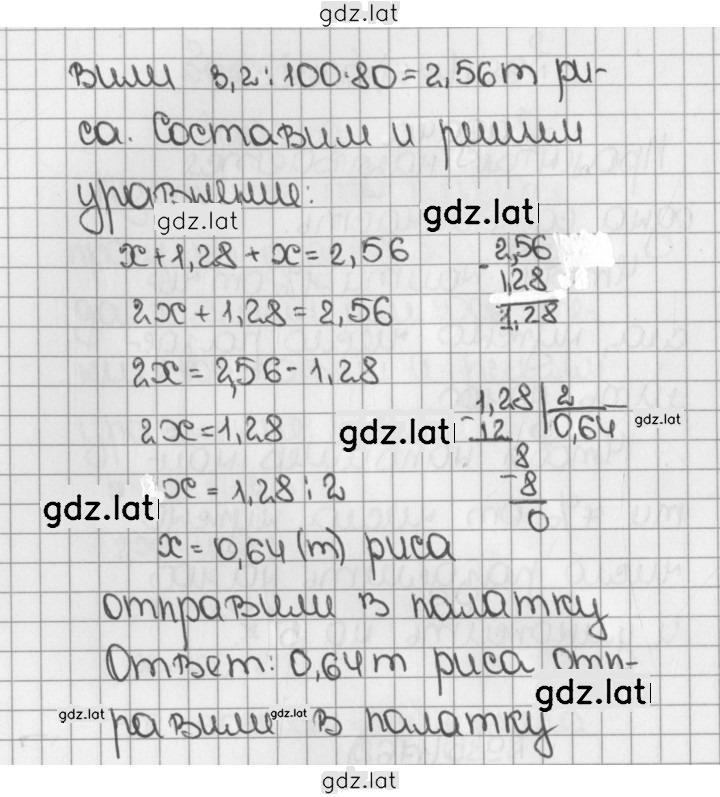 gdz.lat
вили 3,2:100·80=2,56т ри-
са. Составим и решим
уравнение:
gdz.lat
gdz.lat
x+1,28+x=2,56
2x+1,28=2,56
2x=2,56-1,28
2x=1,28
x=1,28:2
x=0,64 (т) риса
2,56
-1,28
1,28
1,28 | 2
-12 0,64
8
-8
0
gdz.lat
gdz.lat
gdz.lat
отправили в палатку
Ответ: 0,64т риса отп-
gdz.lat
равили в палатку
gdz.lat
gdz.lat
gdz.lat